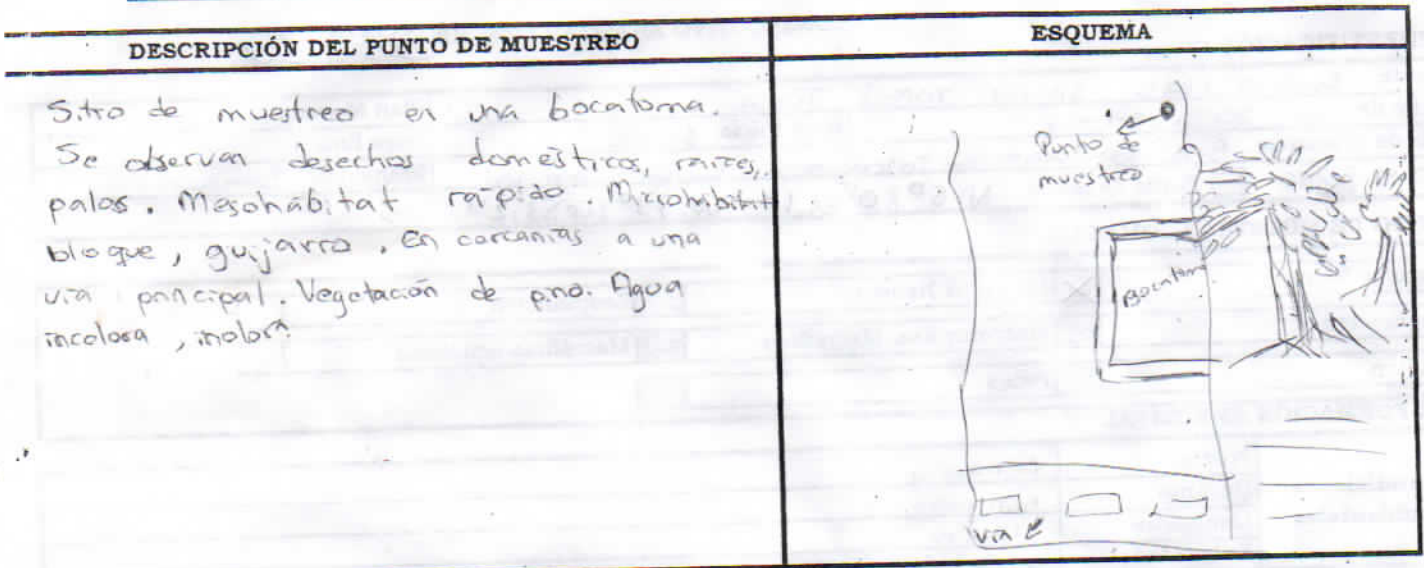 DESCRIPCIÓN DEL PUNTO DE MUESTREO
Sitio de muestreo en una bocatoma.
Se observan desechos domésticos, raíces,
palos. Mesohábitat rápido. Microhábitat
bloque, guijarro. En cercanías a una
vía principal. Vegetación de pino. Agua
incolora, inolora
ESQUEMA
Punto de
muestreo
Bocatoma
Vía